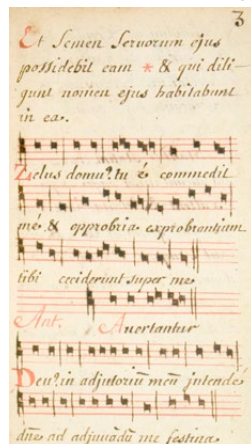 3
Et Semen Servorum ejus
possidebit eam * & qui dili-
gunt nomen ejus habitabunt
in ea.
Zelus domu? tu é commedit
mé & opprobria exprobrantium
tibi ceciderunt super me
Ant. Avertantur
Deu? in adjutoriũ meũ intende
dñe ad adjuvãdũ me festina